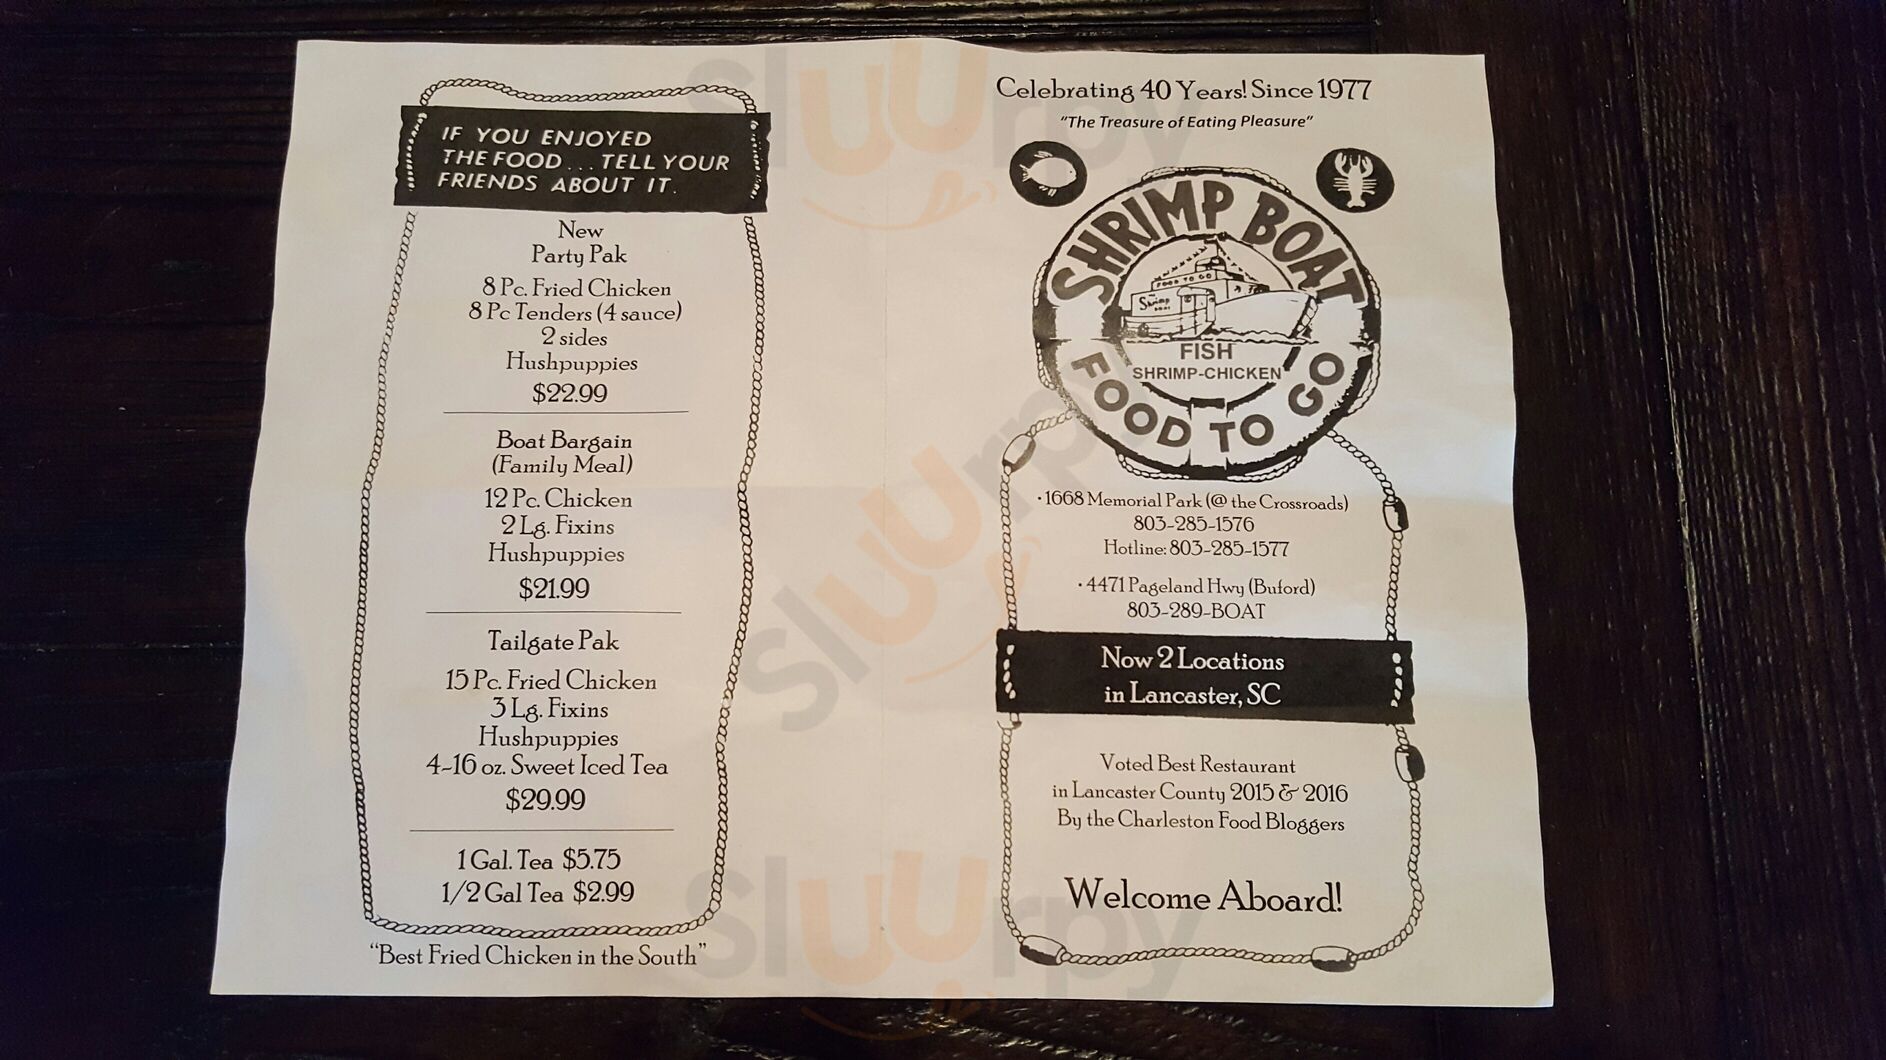 IF YOU ENJOYED
THE FOOD ... TELL YOUR
FRIENDS ABOUT IT.
New
Party Pak
8 Pc. Fried Chicken
8 Pc Tenders (4 sauce)
2 sides
Hushpuppies
$22.99
Boat Bargain
(Family Meal)
12 Pc. Chicken
2 Lg. Fixins
Hushpuppies
$21.99
Tailgate Pak
15 Pc. Fried Chicken
3 Lg. Fixins
Hushpuppies
4-16 oz. Sweet Iced Tea
$29.99
1 Gal. Tea $5.75
1/2 Gal Tea $2.99
"Best Fried Chicken in the South"
Celebrating 40 Years! Since 1977
"The Treasure of Eating Pleasure"
SHRIMP BOAT
FOOD TO GO
The
Shrimp
BOAT
FISH
SHRIMP-CHICKEN
FOOD TO GO
• 1668 Memorial Park (@ the Crossroads)
803-285-1576
Hotline: 803-285-1577
• 4471 Pageland Hwy (Buford)
803-289-BOAT
Now 2 Locations
in Lancaster, SC
Voted Best Restaurant
in Lancaster County 2015 & 2016
By the Charleston Food Bloggers
Welcome Aboard!
sluurpy
sluurpy
sluurpy